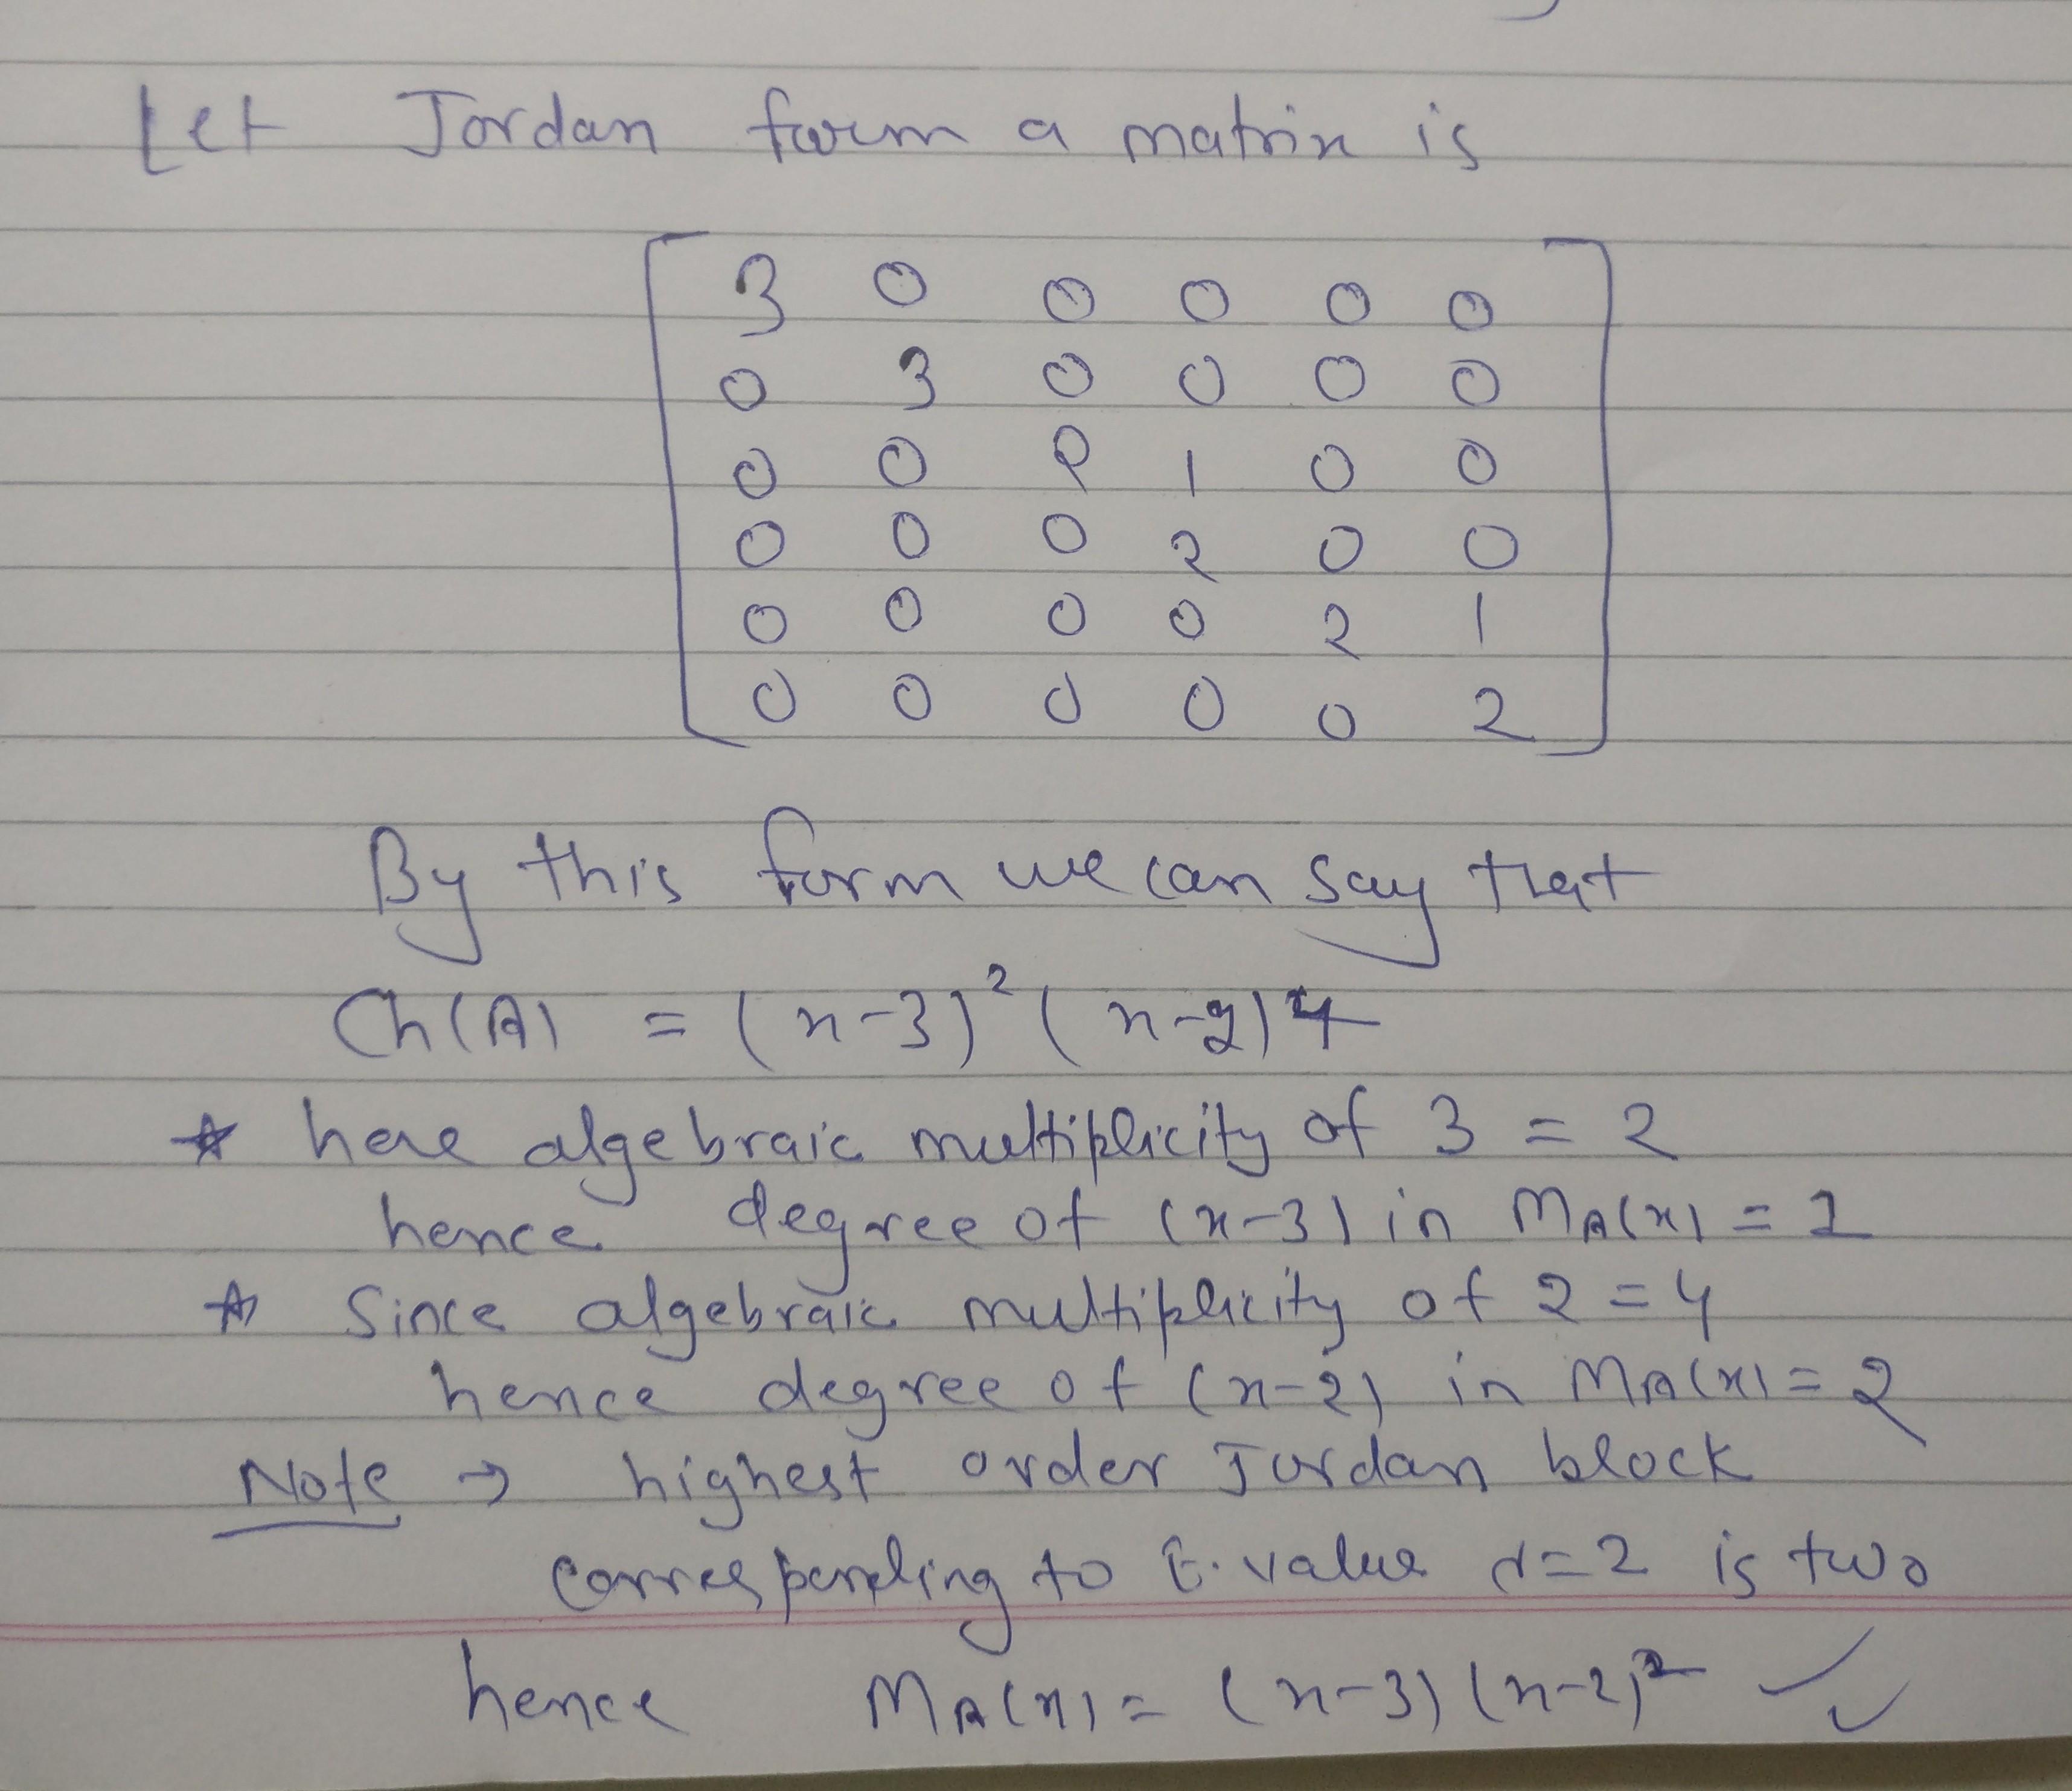 Let Jordan form a matrix is
3 0 0 0 0 0
0 3 0 0 0 0
0 0 2 1 0 0
0 0 0 2 0 0
0 0 0 0 2 1
0 0 0 0 0 2
By this form we can say that
Ch(A) = (x-3)² (x-2)4
☆ here algebraic multiplicity of 3 = 2
hence degree of (x-3) in MA(x) = 1
☆ Since algebraic multiplicity of 2 = 4
hence degree of (x-2) in MA(x) = 2
Note → highest order Jordan block
corresponding to E.value d=2 is two
hence MA(x) = (x-3) (x-2)²